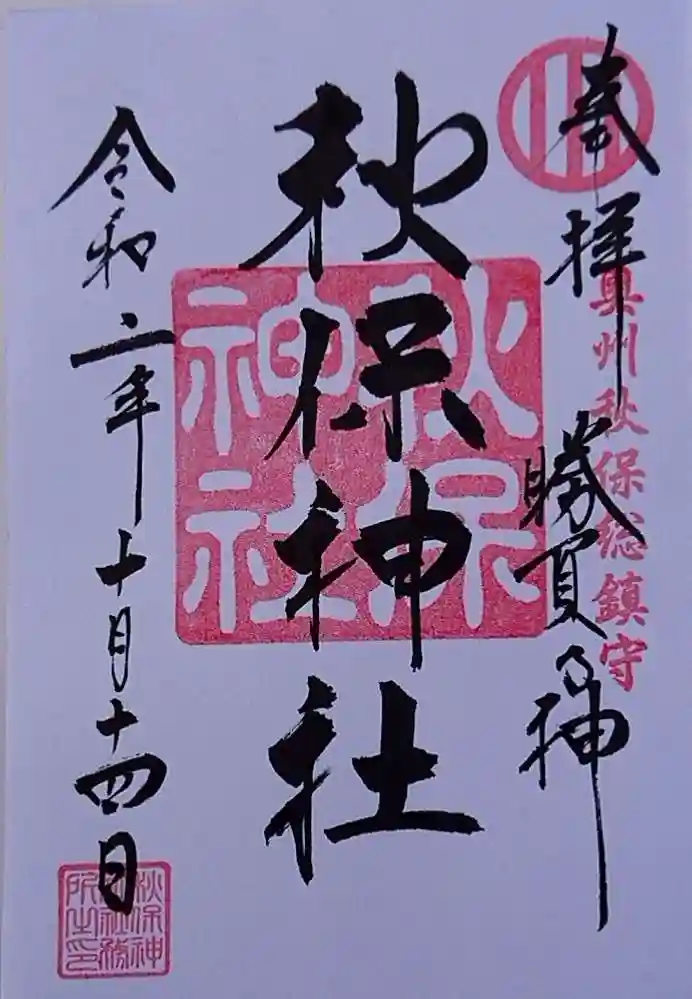 奉拝
奥州秋保総鎮守
勝負の神
秋保神社
秋保神社
令和二年十月十四日
秋保神
社社務
所之印